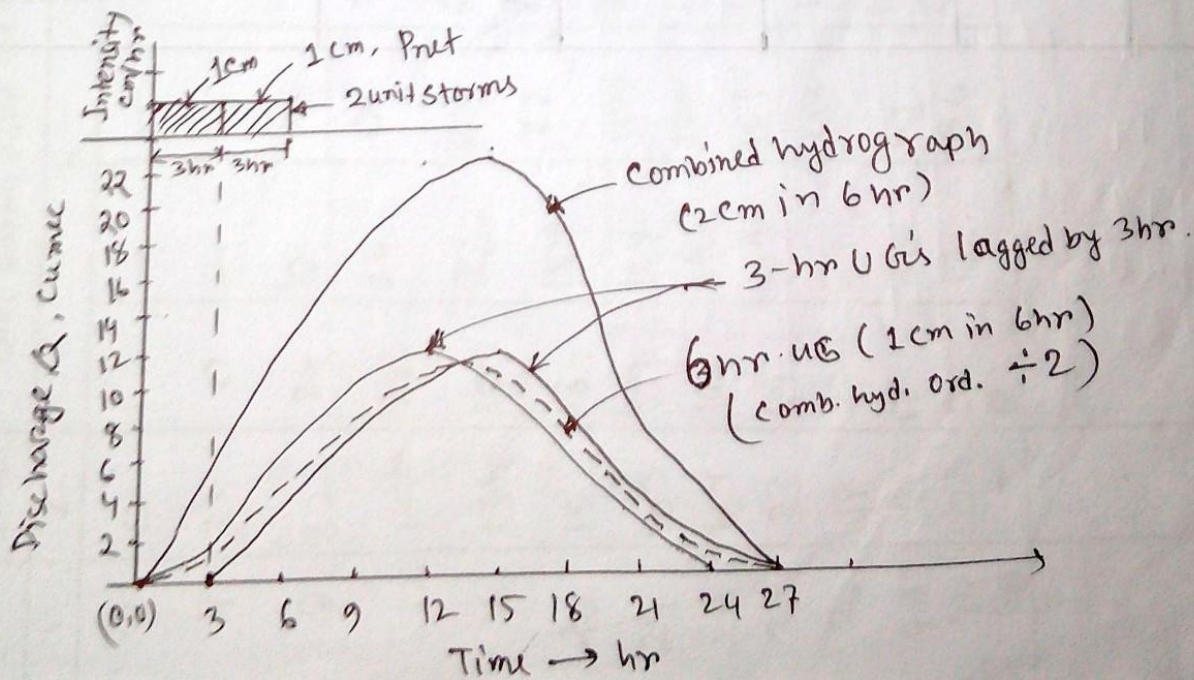 Intensity
cm/hr
1cm
1cm, Pnet
2unit storms
3hr 3hr
combined hydrograph
(2cm in 6hr)
3-hr UG's lagged by 3hr.
6hr. UG (1cm in 6hr)
(comb. hyd. ord. ÷2)
Discharge Q, Cumec
22
20
18
16
14
12
10
8
6
4
2
(0,0) 3 6 9 12 15 18 21 24 27
Time → hr